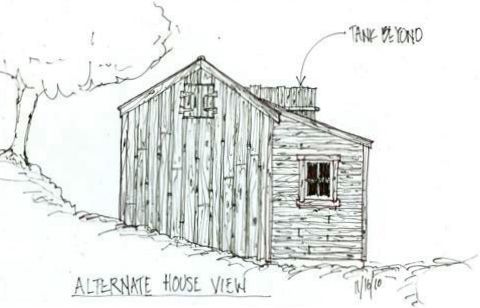 TANK BEYOND
ALTERNATE HOUSE VIEW
11/16/10